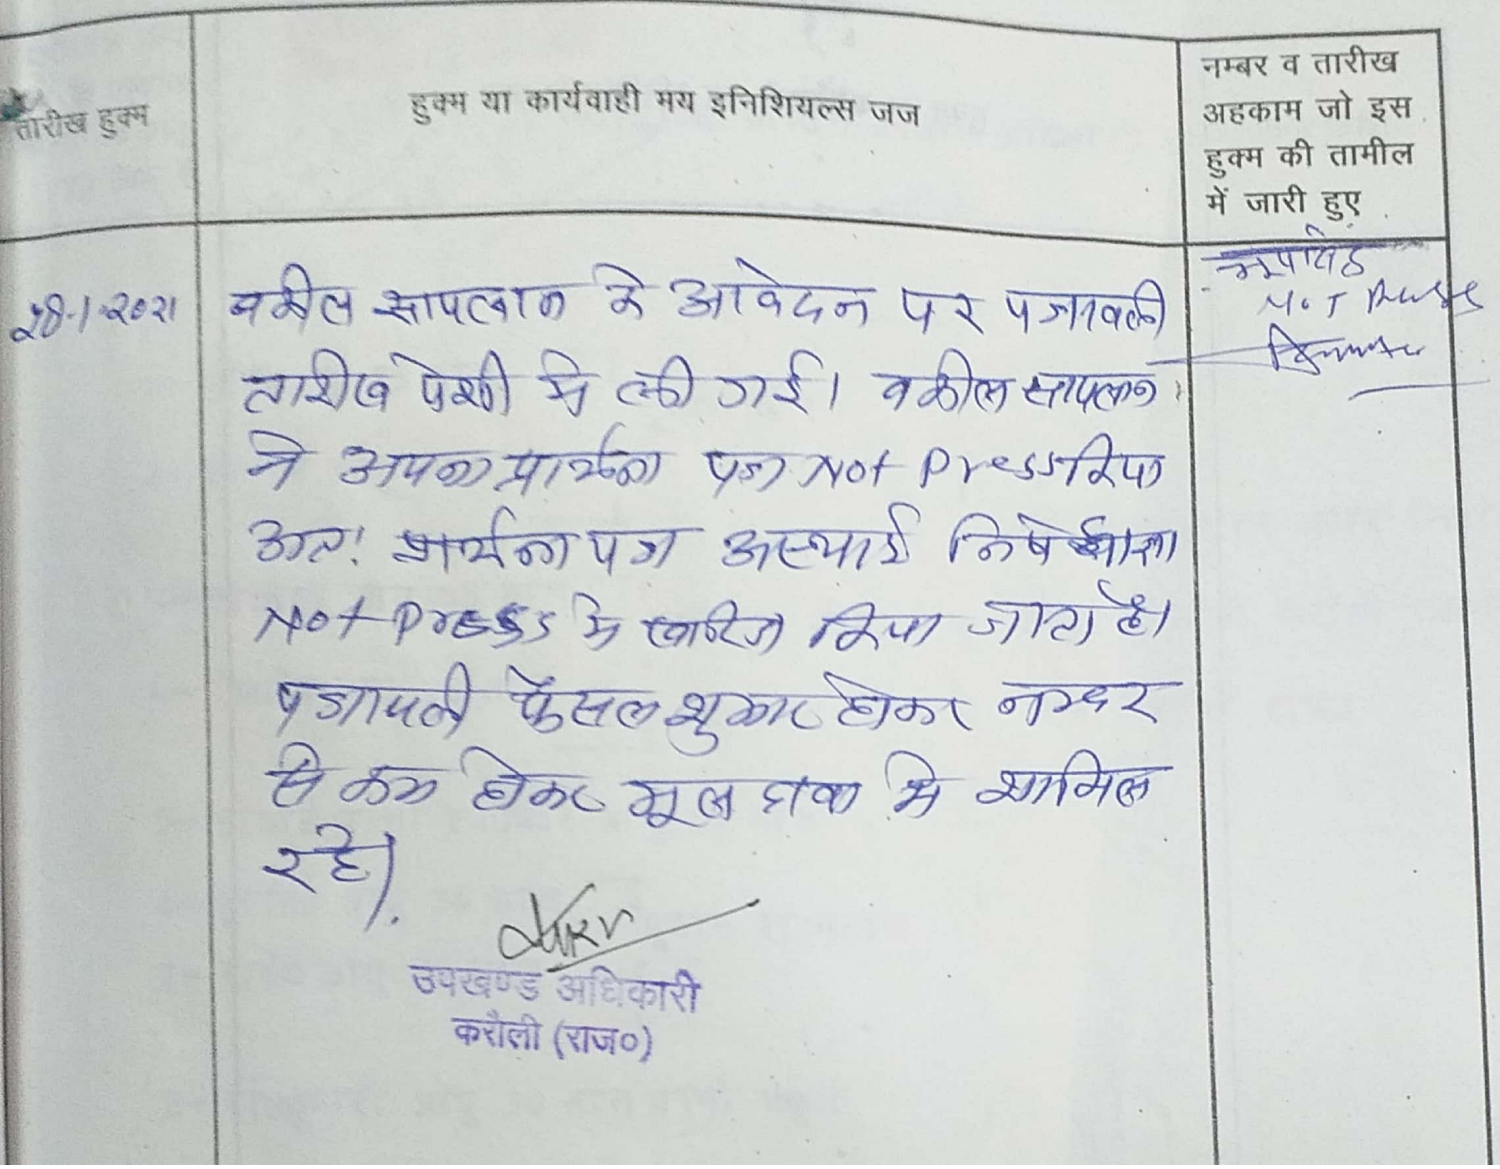 तारीख हुक्म
हुक्म या कार्यवाही मय इनिशियल्स जज
नम्बर व तारीख
अहकाम जो इस
हुक्म की तामील
में जारी हुए
28-1-2021
वकील सायलान के आवेदन पर पत्रावली
तारीख पेशी में ली गई। वकील सायलान
ने अपना प्रार्थना पत्र Not Press किया
अतः प्रार्थना पत्र अस्थाई निषेधाज्ञा
Not Press में खारिज किया जाता है।
पत्रावली फैसल शुमार होकर नम्बर
से कम होकर मूल दावा में शामिल
रहे।
उपखण्ड अधिकारी
करौली (राज०)